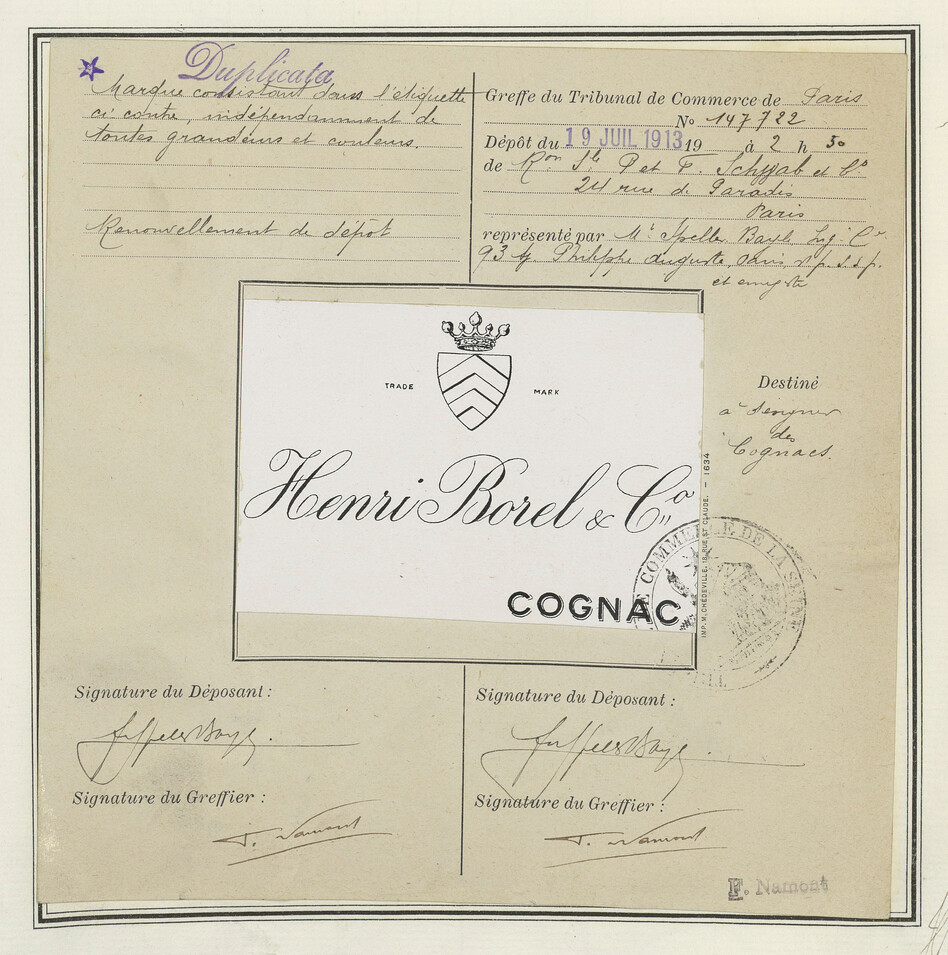 Duplicata
Marque consistant dans l'étiquette
ci contre, indépendamment de
toutes grandeurs et couleurs.
Renouvellement de dépôt
Greffe du Tribunal de Commerce de Paris
No 147722
Dépôt du 19 JUIL 1913 19 à 2 h 50
de Ron Sle P et F. Schwab et Co
24 rue de Paradis
Paris
représenté par Mt Speller Bayle
93 Bd Philippe Auguste, Paris, s.p.s.s.p.
TRADE MARK
Henri Borel & Co
COGNAC
IMP. M. CHÉDEVILLE, 18, RUE ST CLAUDE. - 1634
Destiné
à désigner
des
Cognacs.
DE COMMERCE DE LA SEINE
Signature du Déposant :
Signature du Greffier :
F. Namont
Signature du Déposant :
Signature du Greffier :
F. Namont
F. Namont